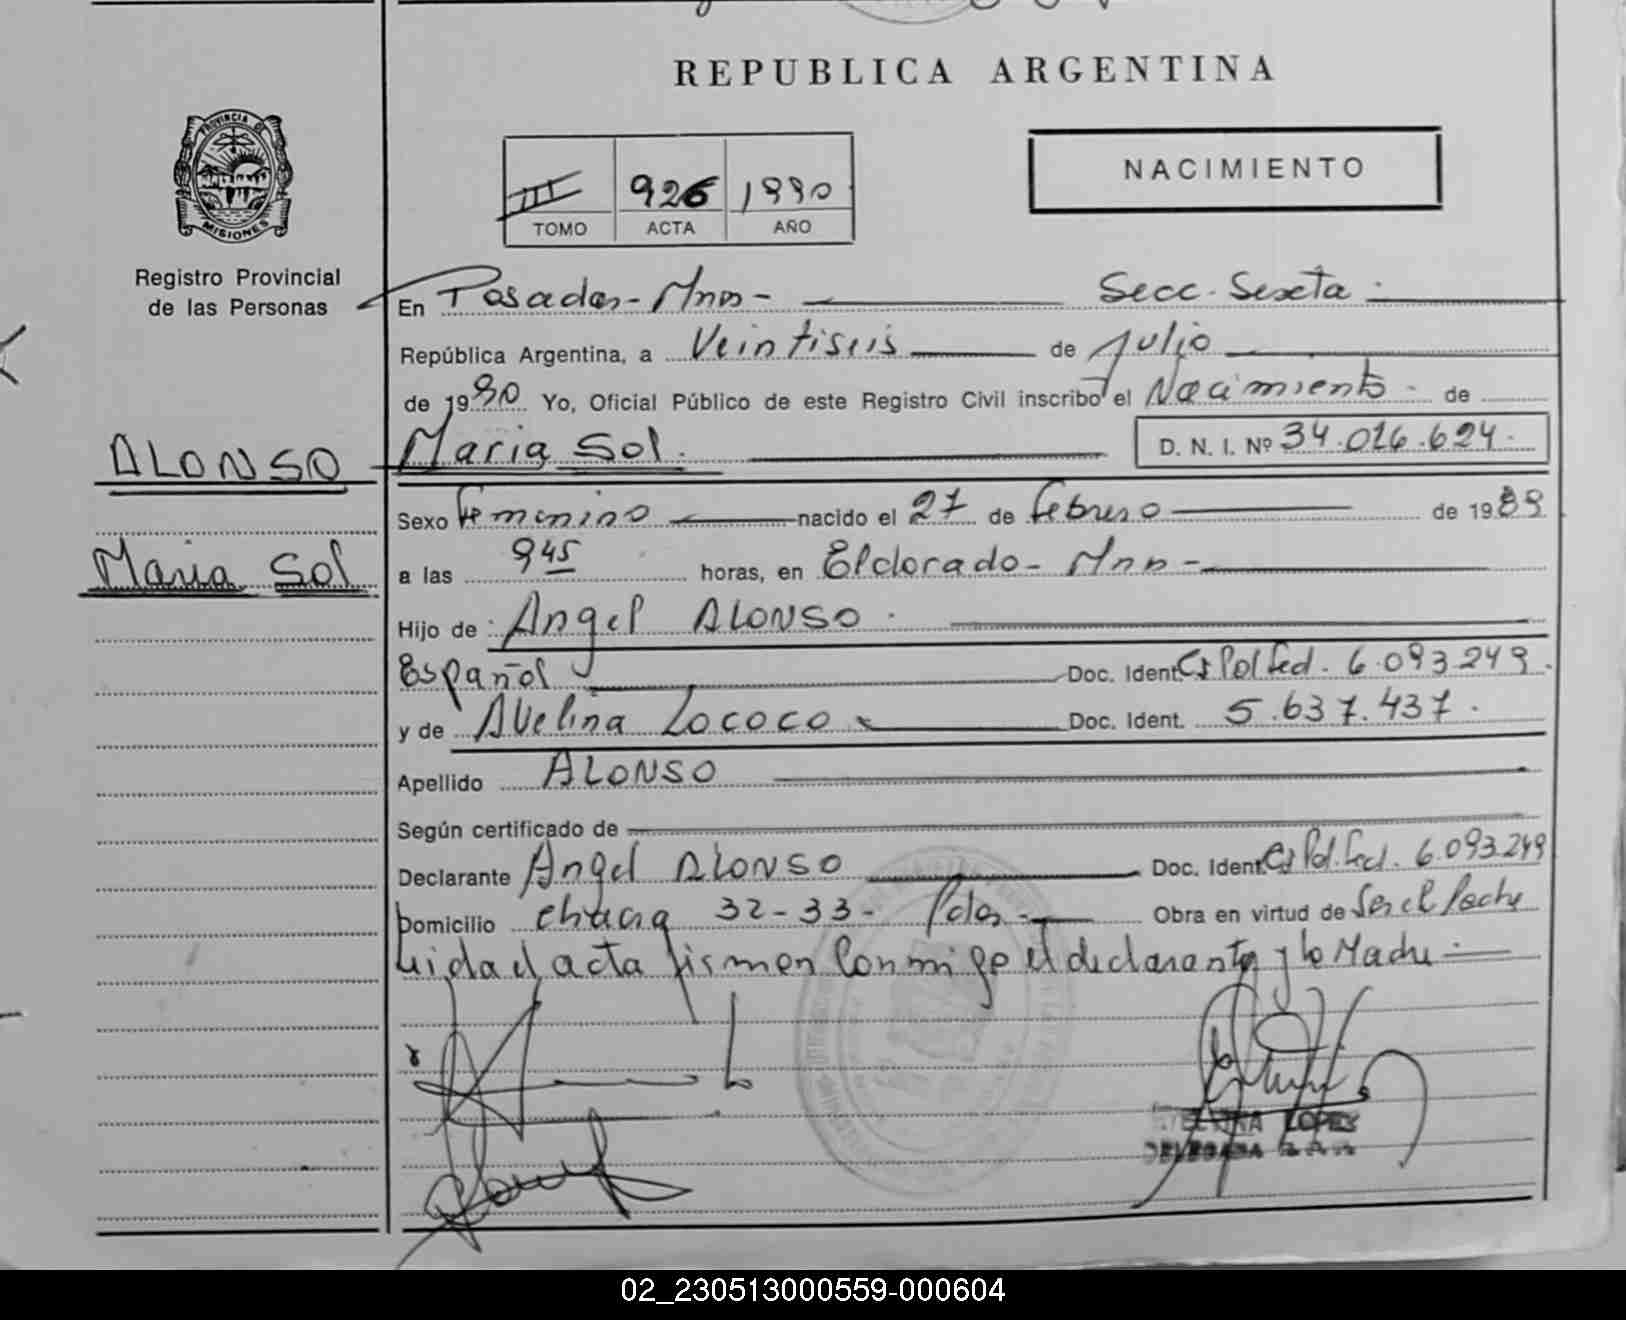 REPUBLICA ARGENTINA
PROVINCIA DE
MISIONES
Registro Provincial
de las Personas
III 926 1990
TOMO ACTA AÑO
NACIMIENTO
En Posadas - Mnes - Secc. Sexta
República Argentina, a Veintiseis de Julio
de 1990 Yo, Oficial Público de este Registro Civil inscribo el Nacimiento de
ALONSO
Maria Sol
Maria Sol. D. N. I. Nº 34.016.624.
Sexo Femenino nacido el 27 de Febrero de 1989
a las 9 45 horas, en Eldorado - Mnes -
Hijo de: Angel ALONSO
Español Doc. Ident. Ci Pol Fed. 6.093.249.
y de Avelina Lococo Doc. Ident. 5.637.437.
Apellido ALONSO
Según certificado de
Declarante Angel ALONSO Doc. Ident. Ci Pol. Fed. 6.093.249
Domicilio chacra 32-33- Pdas. Obra en virtud de Ser el Padre
Leida el acta firman conmigo el declarante y la Madre
LOPEZ
DELEGADA
02_230513000559-000604